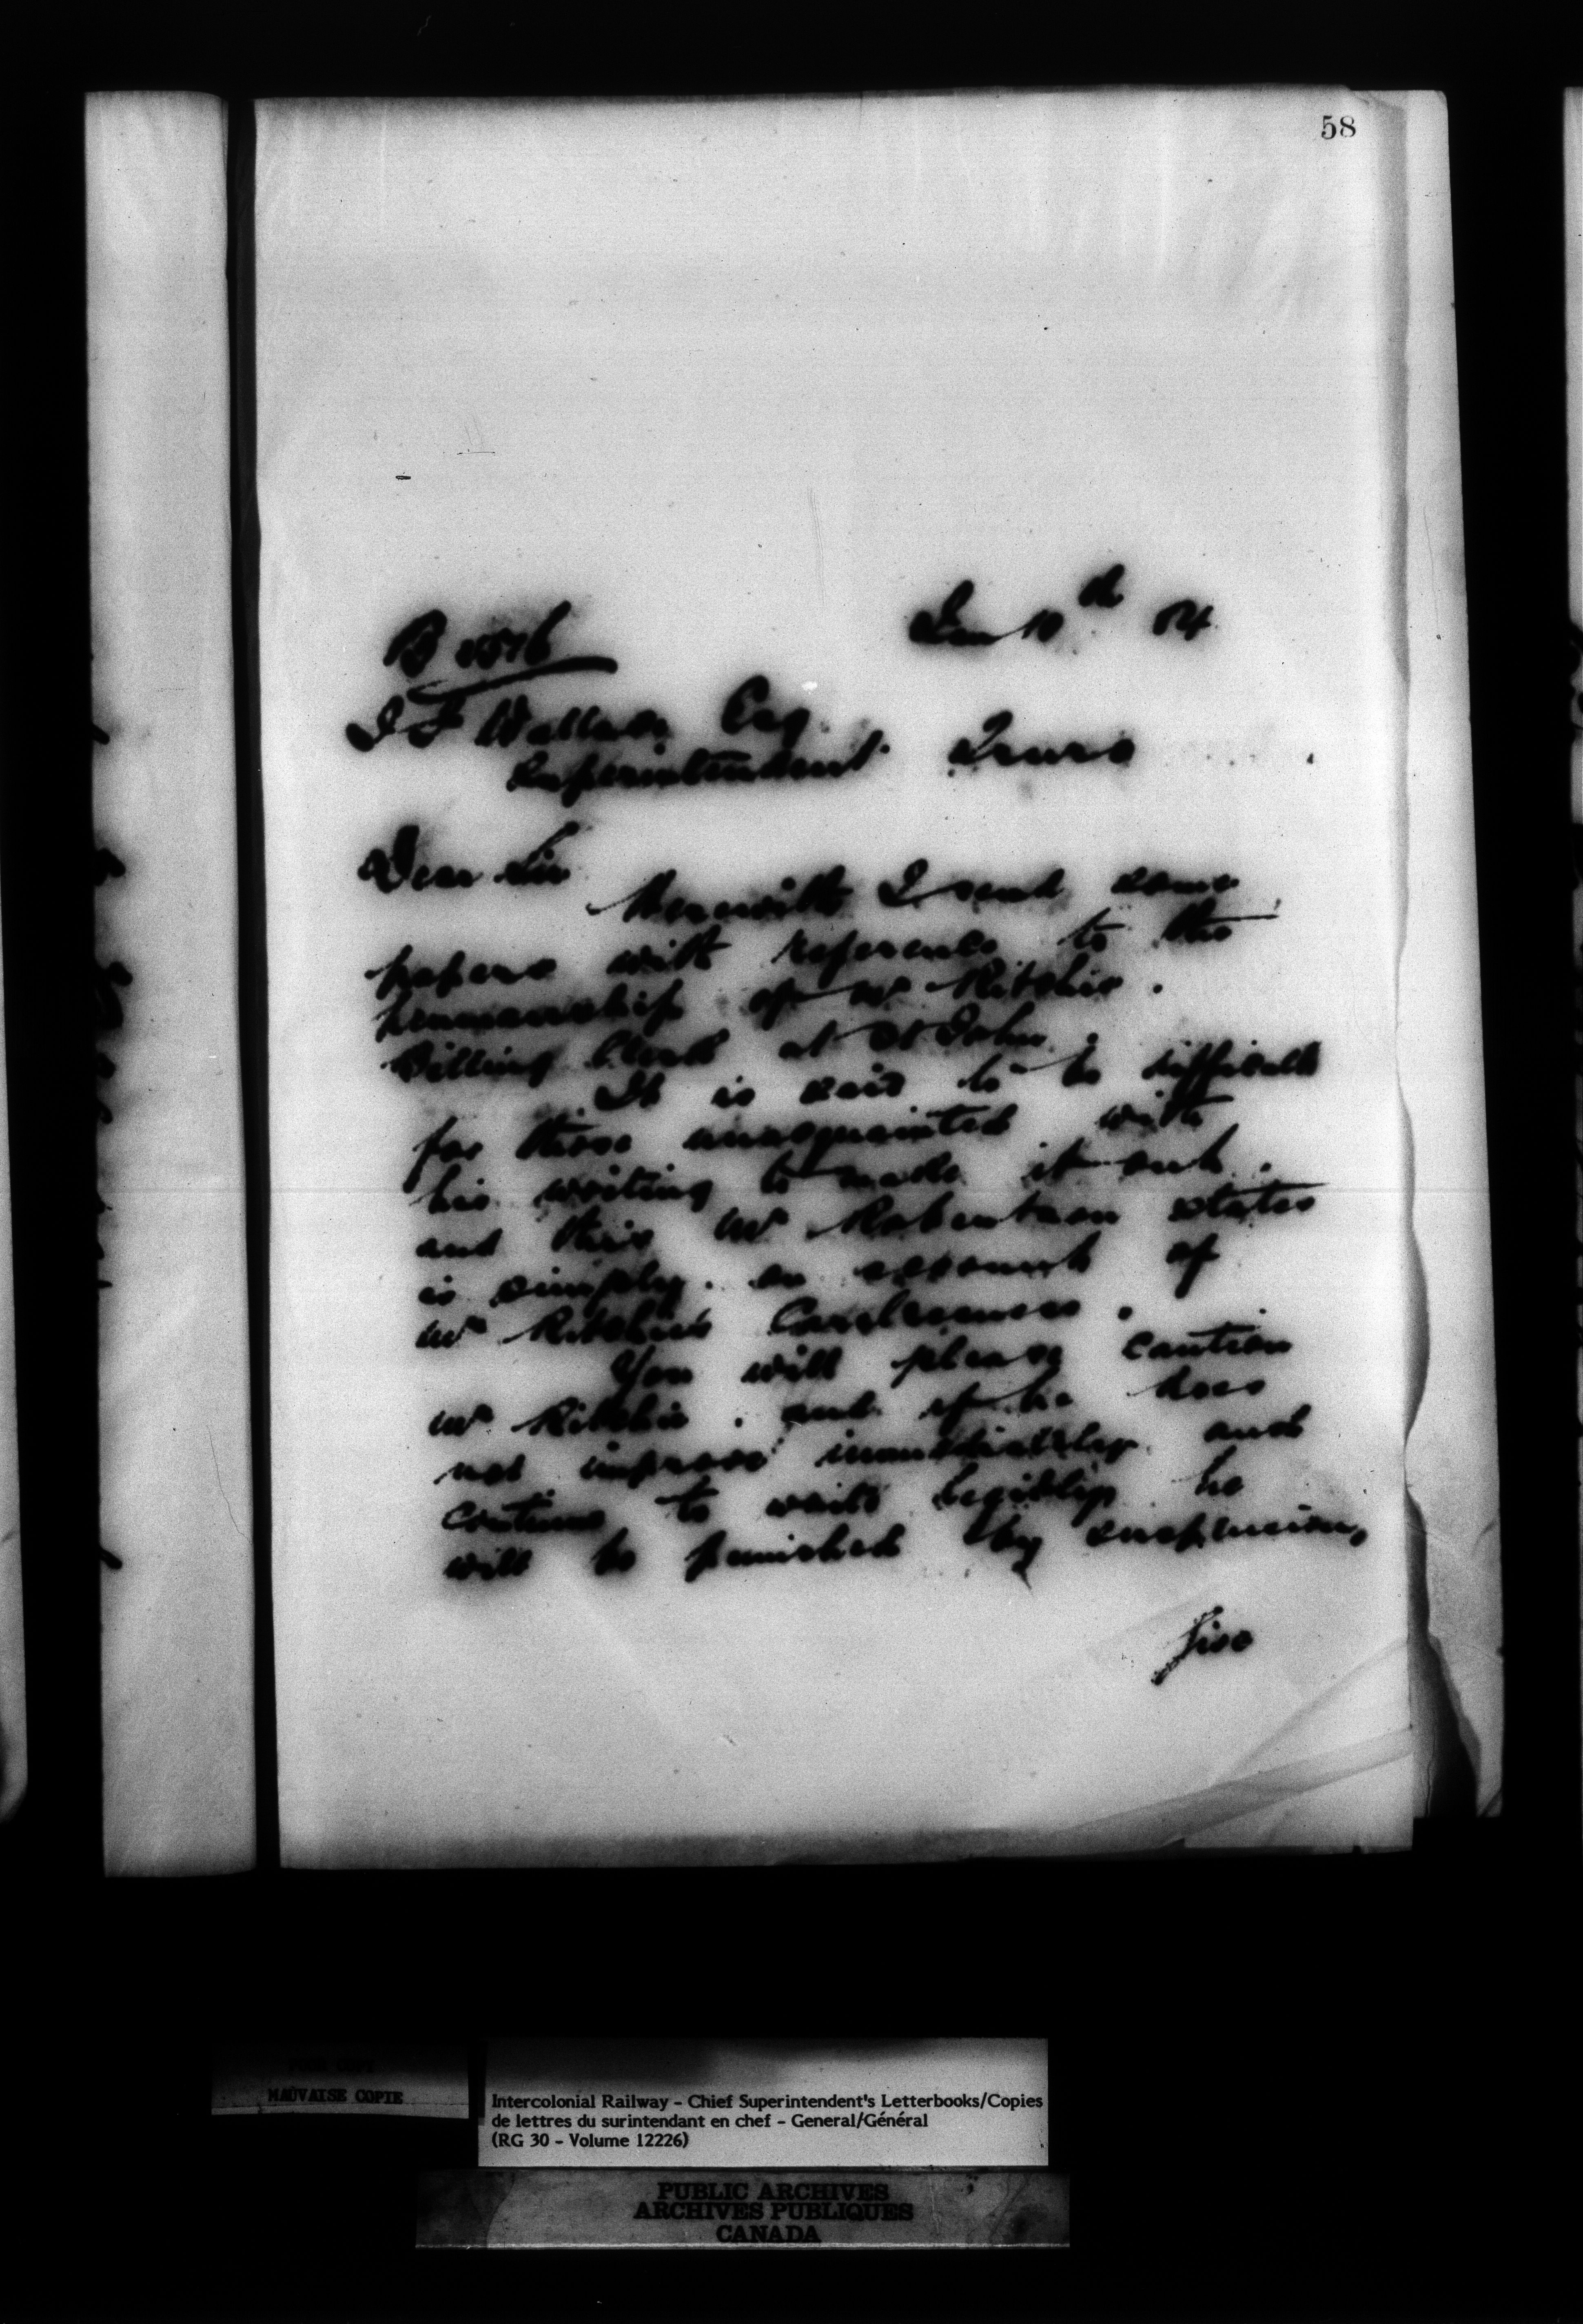 58
Jan 10th 84
B 2576
J F Wallace Esq
Superintendent Truro
Dear Sir
Herewith I send some
papers with reference to the
penmanship of Mr Ritchie.
Billing Clerk at St John.
It is said to be difficult
for those unacquainted with
his writing to make it out.
and this Mr Robertson states
is simply on account of
Mr Ritchie's Carelessness.
You will please caution
Mr Ritchie. and if he does
not improve immediately and
continue to write legibly he
will be punished by suspension,
MAUVAISE COPIE
Intercolonial Railway - Chief Superintendent's Letterbooks/Copies
de lettres du surintendant en chef - General/Général
(RG 30 - Volume 12226)
PUBLIC ARCHIVES
ARCHIVES PUBLIQUES
CANADA